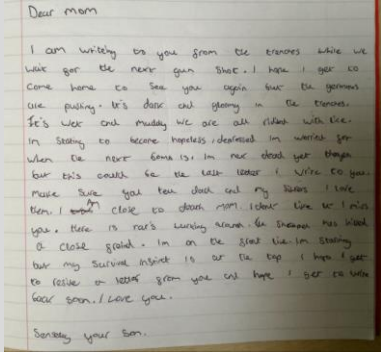 Dear mom
I am writing to you from the trenches while we
wait for the next gun shot. I hope I get to
come home to see you again but the germans
are pushing. It's dark and gloomy in the trenches.
It's wet and muddy we are all ridden with lice.
Im starting to become hopeless, depressed im worried for
when the next bomb is. Im not dead yet though
but this could be the last letter I write to you.
Make sure you tell dad and my I love
them. I Am close to death MOM. I dont like it I miss
you. there is rat's lurking around. has
a close friend. Im on the front line. Im starving
but my survival instinct is at the top I hope I get
to resive a letter from you and hope I get to write
back soon. I Love you.
your Son.